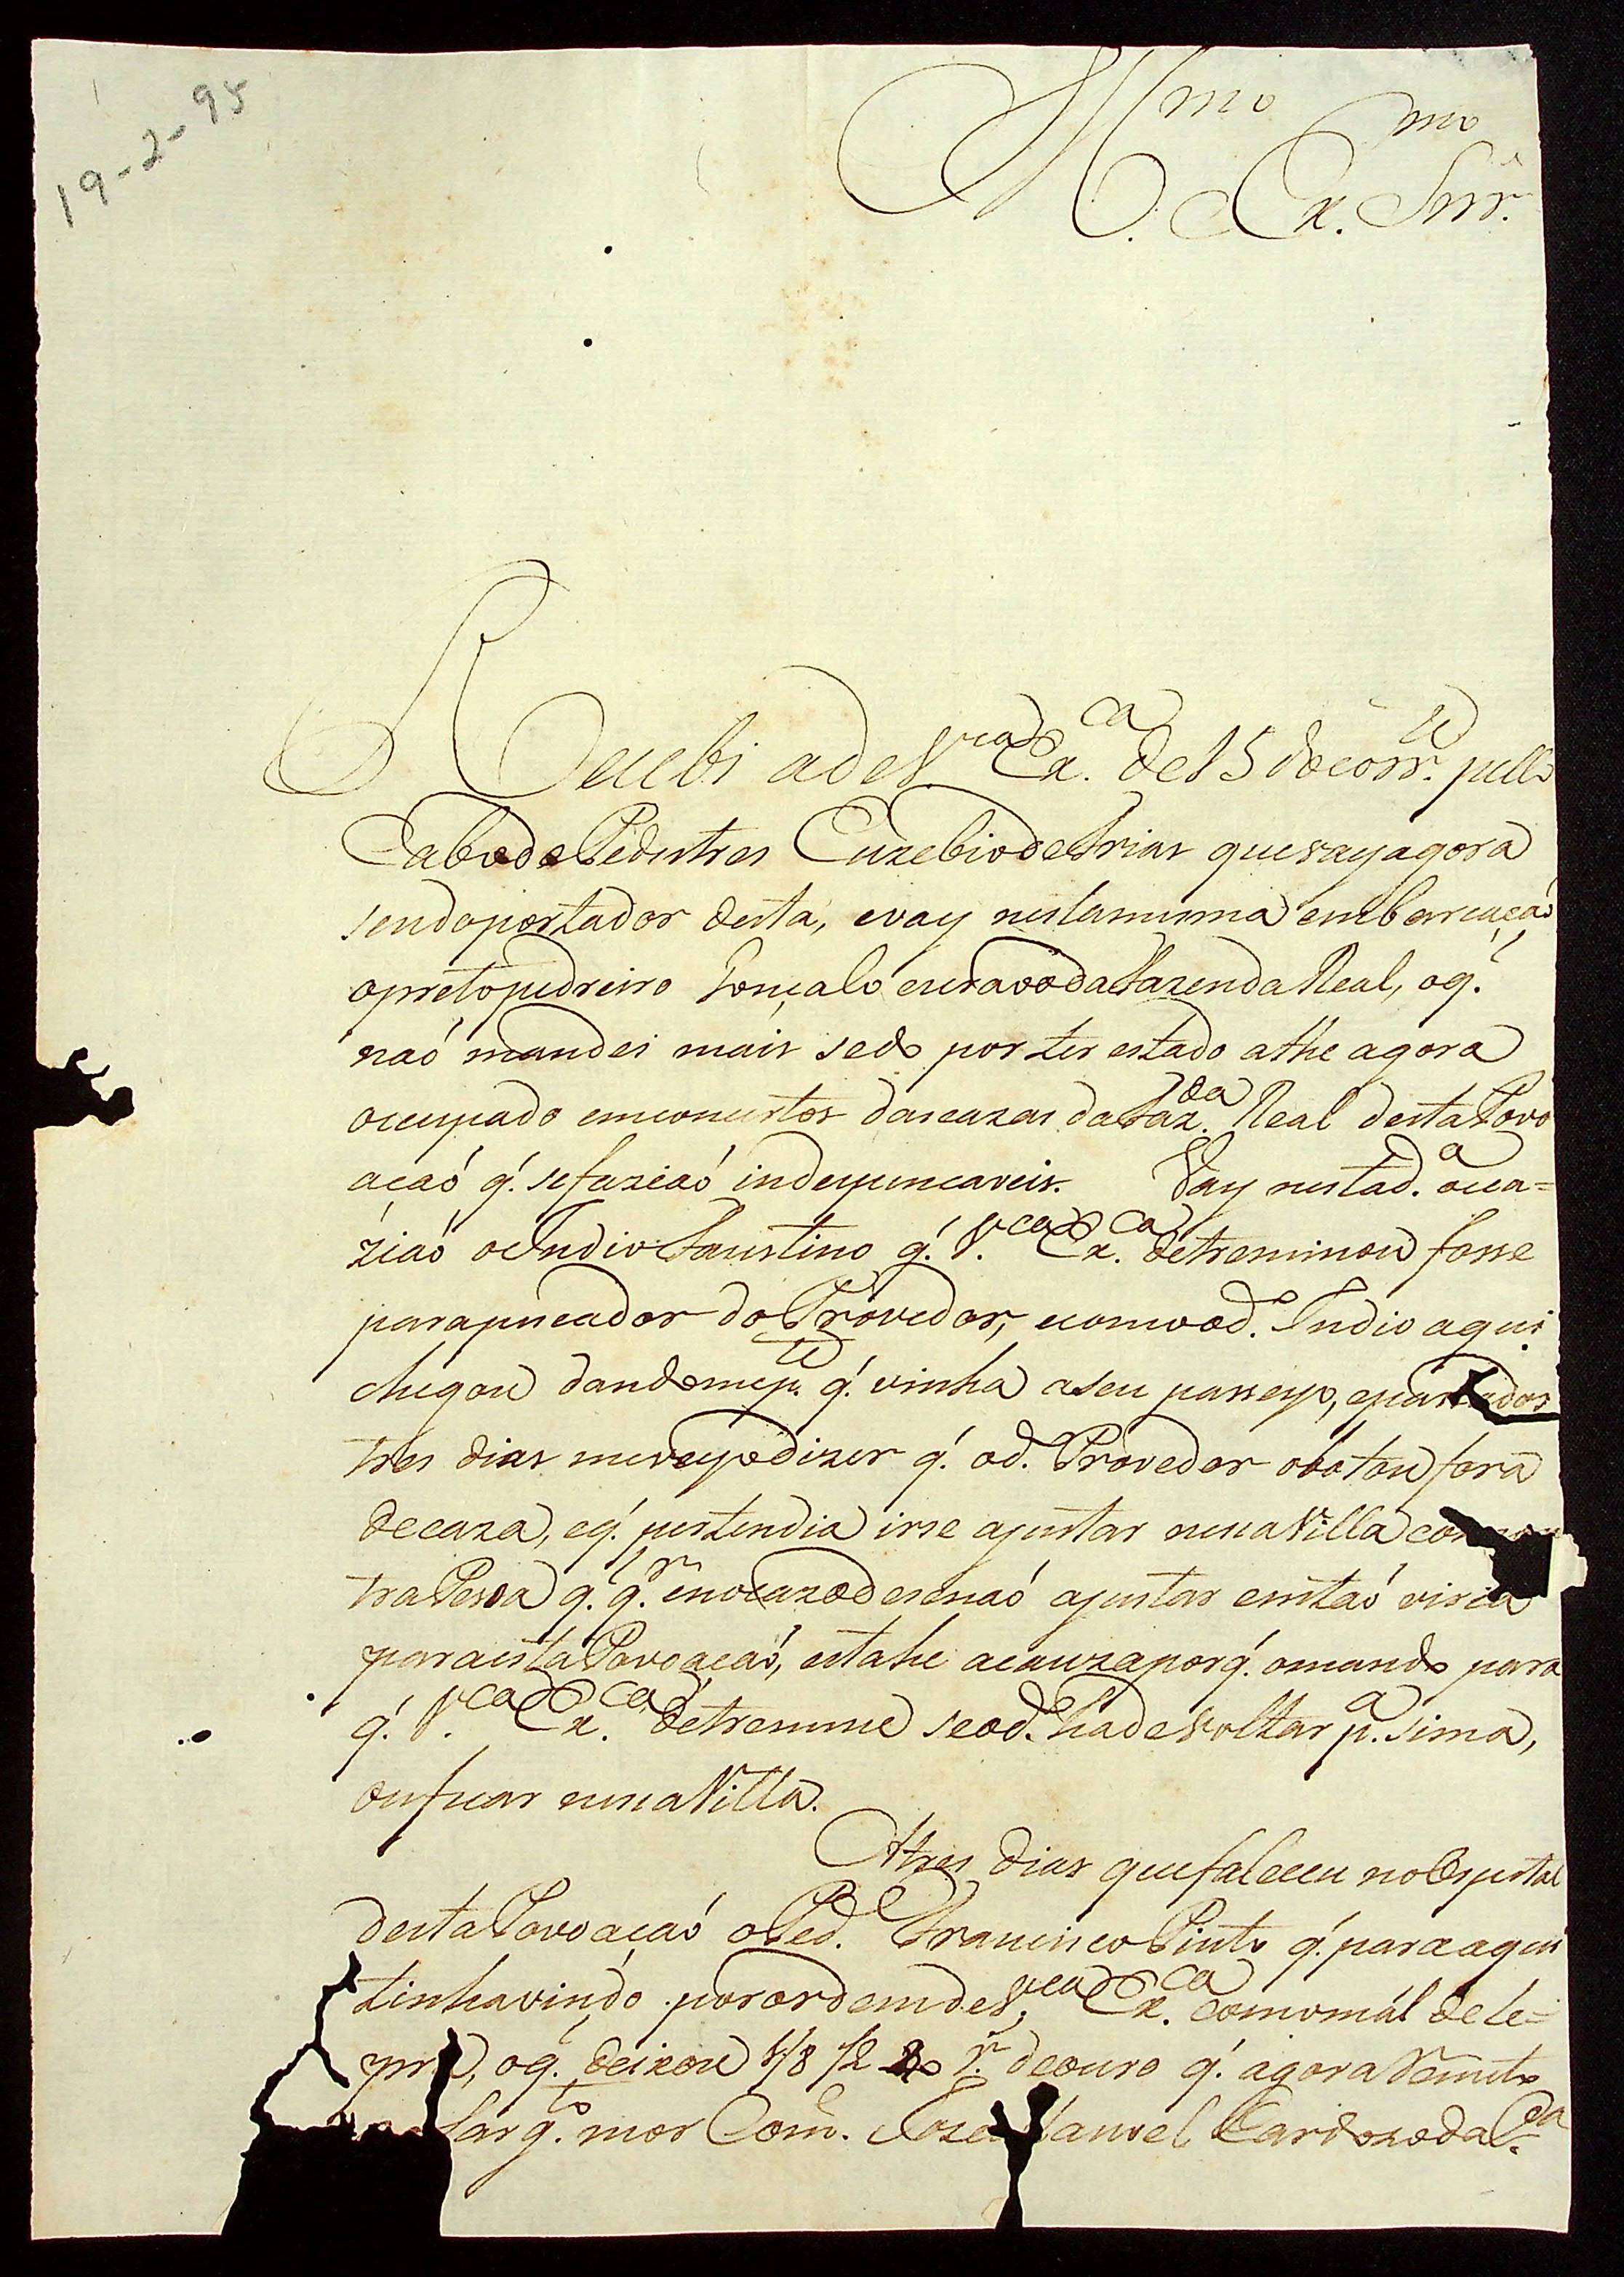 19-2-95
Illmo
Exmo Snr.
Recebi a de Vca Exca de 15 do corrte pello
Cabo de Pedestres Euzebio de Arias que vay agora
sendo portador desta, e vay nesta mesma embarcaçaó
o preto pedreiro Gonçalo escravo da Fazenda Real, o q.
naó mandei mais sedo por ter estado athe agora
occupado em consertos das cazas da Fazda Real desta Povo
açaó q. se faziaó indespencaveis. Vay nesta da occa=
ziaó o Indio Faustino q. Vca Exca detreminou fosse
para pescador do Provedor, e como o d. Indio aqui
chegou dandome pte q. vinha a seu passeyo, e passados
tres dias me veyo dizer q. o d. Provedor o botou fora
de caza, e q. pertendia irse ajustar nessa Villa com
tra Pessoa q. qr e no cazo de se naó ajustar entaó viria
para esta Povoaçaó, esta he a cauza porq. o mando para
q. Vca Exca detremine se o d. ha de voltar pa sima,
ou ficar nessa Villa.
A tres dias que faleceu no Espital
desta Povoaçaó o Ped. Francisco Pinto q. para aqui
tinha vindo por ordem de Vca Exca com o mál de le=
pra, o q. deixou 8/8 1/2 de ouro q. agora remeto
Sargto mor Com. Joze Manoel Cardozo da Ca